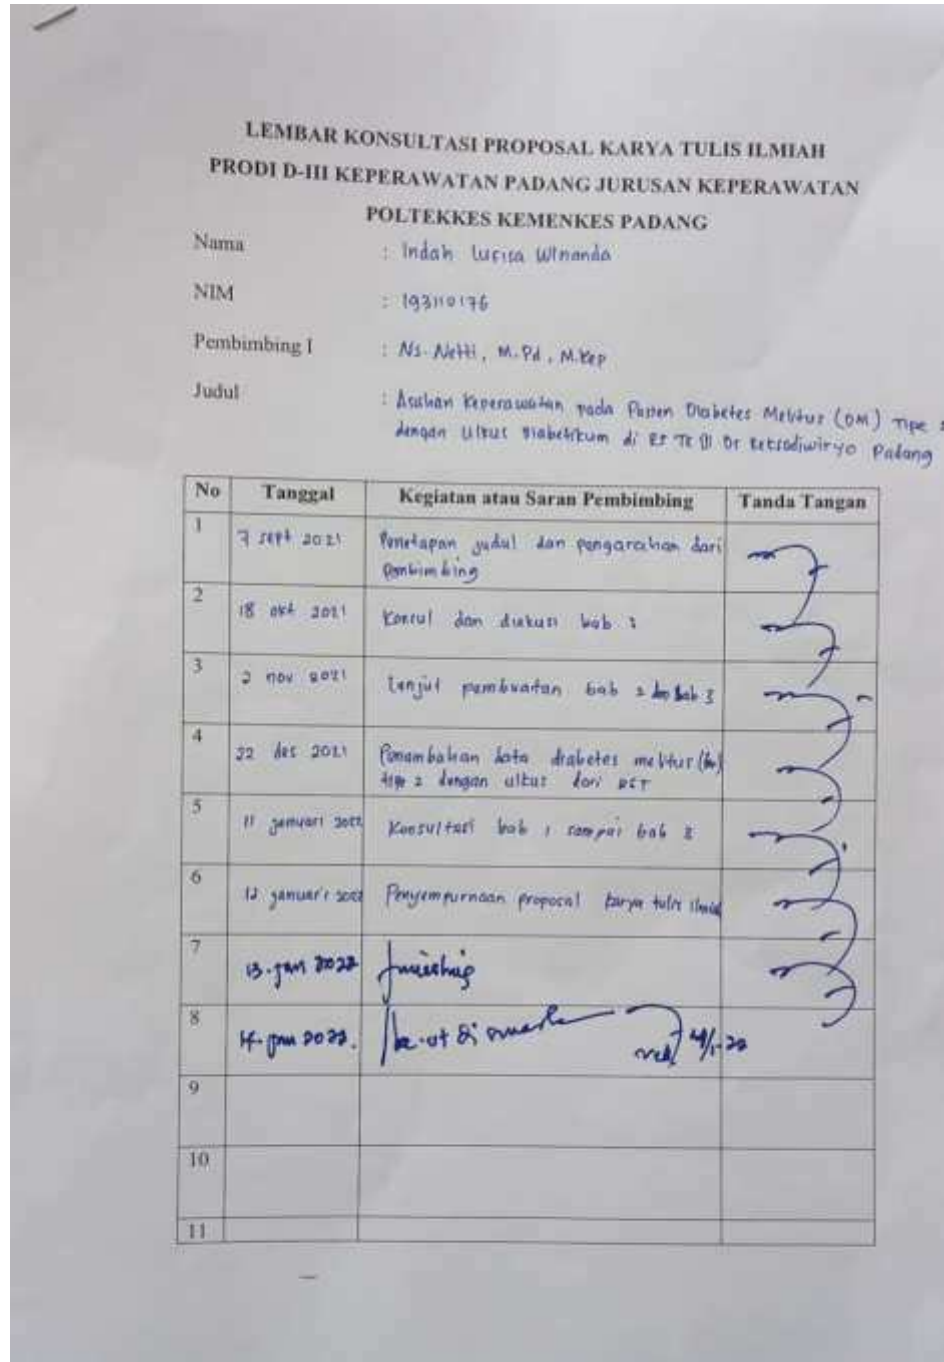 LEMBAR KONSULTASI PROPOSAL KARYA TULIS ILMIAH
PRODI D-III KEPERAWATAN PADANG JURUSAN KEPERAWATAN
POLTEKKES KEMENKES PADANG
Nama : Indah Lucisa Winanda
NIM : 193110176
Pembimbing I : Ns. Netti, M.Pd, M.Kep
Judul : Asuhan Keperawatan pada Pasien Diabetes Melitus (DM) Tipe 2
dengan Ulkus Diabetikum di RS TK III Dr Reksodiwiryo Padang
No Tanggal Kegiatan atau Saran Pembimbing Tanda Tangan
1 7 sept 2021 Penetapan judul dan pengarahan dari
pembimbing
2 18 okt 2021 Konsul dan diskusi bab 1
3 2 nov 2021 Lanjut pembuatan bab 2 bab 3
4 22 des 2021 Penambahan data diabetes melitus
tipe 2 dengan ulkus dari RST
5 11 januari 2022 Konsultasi bab 1 sampai bab 3
6 12 januari 2022 Penyempurnaan proposal karya tulis ilmiah
7 13 jan 2022
8 14 jan 2022.
9
10
11